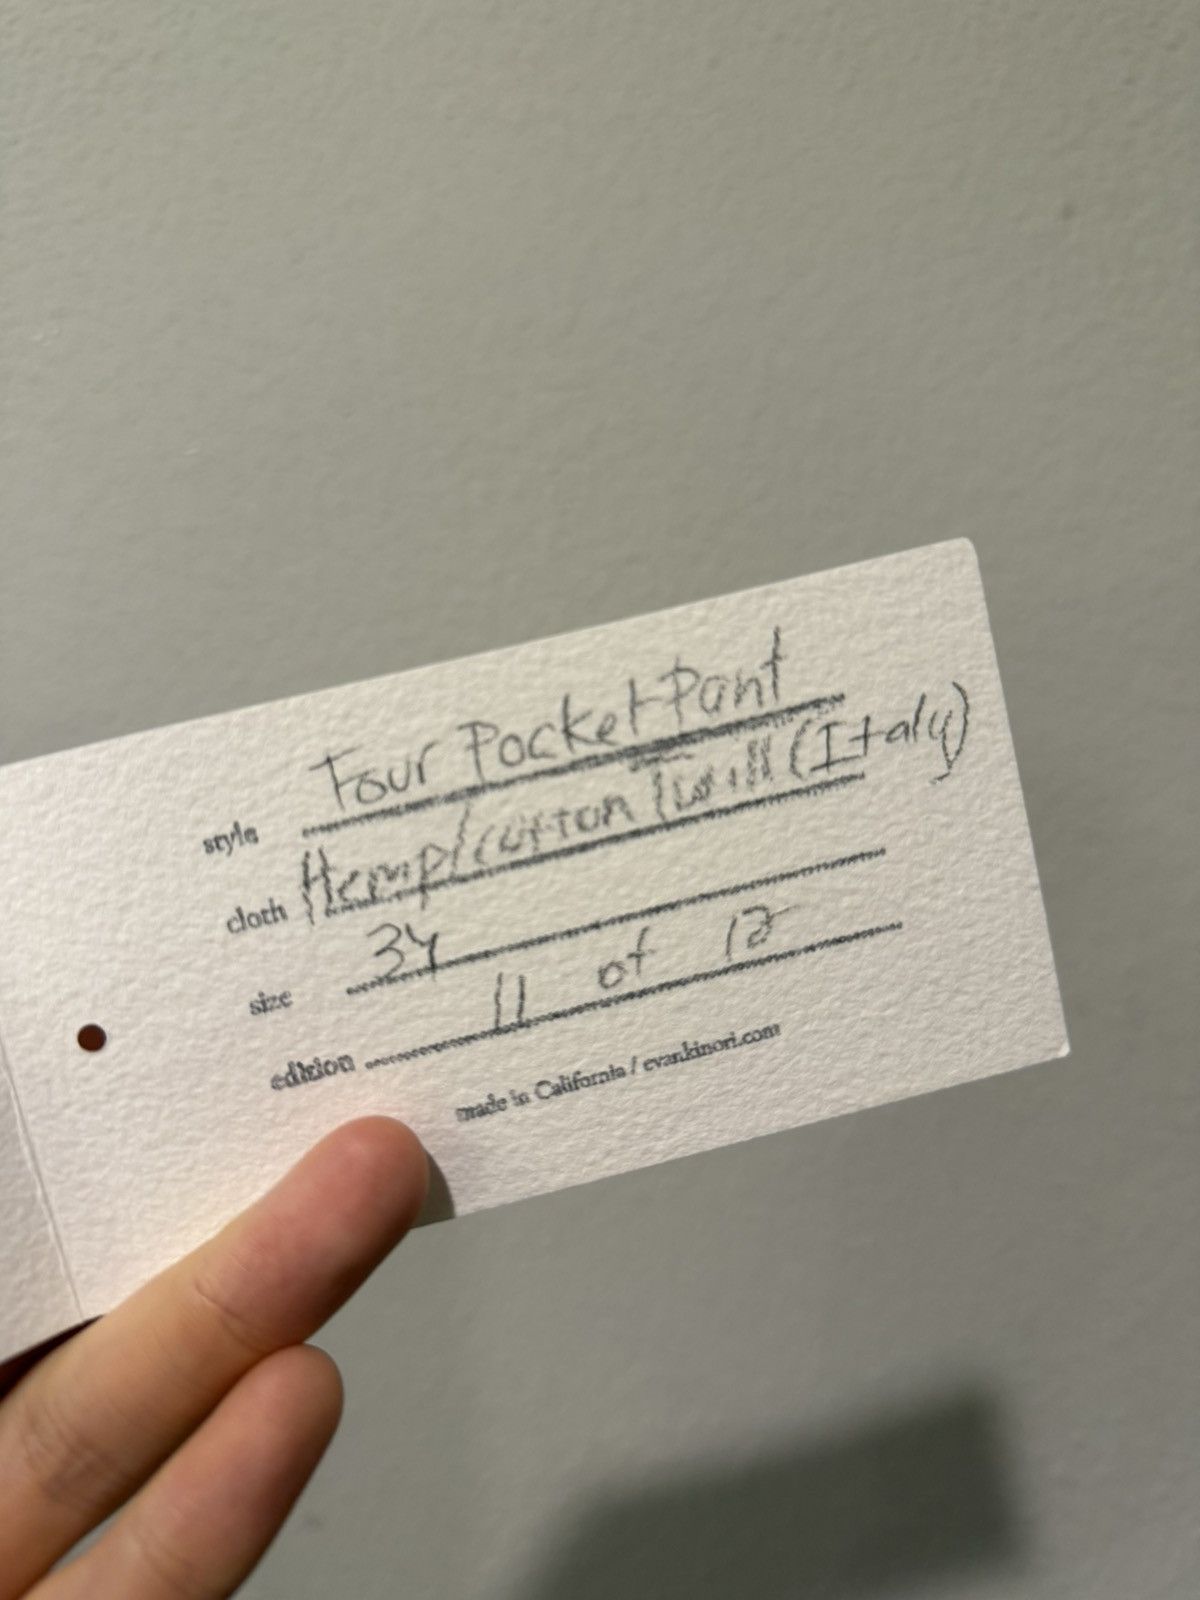 style Four Pocket Pant
cloth Hemp/cotton Twill (Italy)
size 34
edition 11 of 12
made in California / evankinori.com